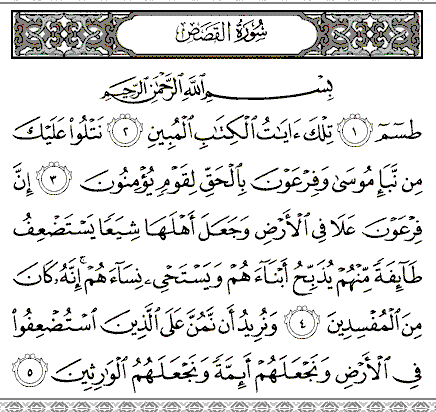 سُورَةُ القَصَصِ
بِسْمِ اللَّهِ الرَّحْمَٰنِ الرَّحِيمِ
طسٓمٓ ١ تِلْكَ ءَايَٰتُ ٱلْكِتَٰبِ ٱلْمُبِينِ ٢ نَتْلُوا۟ عَلَيْكَ
مِن نَّبَإِ مُوسَىٰ وَفِرْعَوْنَ بِٱلْحَقِّ لِقَوْمٍ يُؤْمِنُونَ ٣ إِنَّ
فِرْعَوْنَ عَلَا فِى ٱلْأَرْضِ وَجَعَلَ أَهْلَهَا شِيَعًا يَسْتَضْعِفُ
طَآئِفَةً مِّنْهُمْ يُذَبِّحُ أَبْنَآءَهُمْ وَيَسْتَحْىِۦ نِسَآءَهُمْ ۚ إِنَّهُۥ كَانَ
مِنَ ٱلْمُفْسِدِينَ ٤ وَنُرِيدُ أَن نَّمُنَّ عَلَى ٱلَّذِينَ ٱسْتُضْعِفُوا۟
فِى ٱلْأَرْضِ وَنَجْعَلَهُمْ أَئِمَّةً وَنَجْعَلَهُمُ ٱلْوَٰرِثِينَ ٥